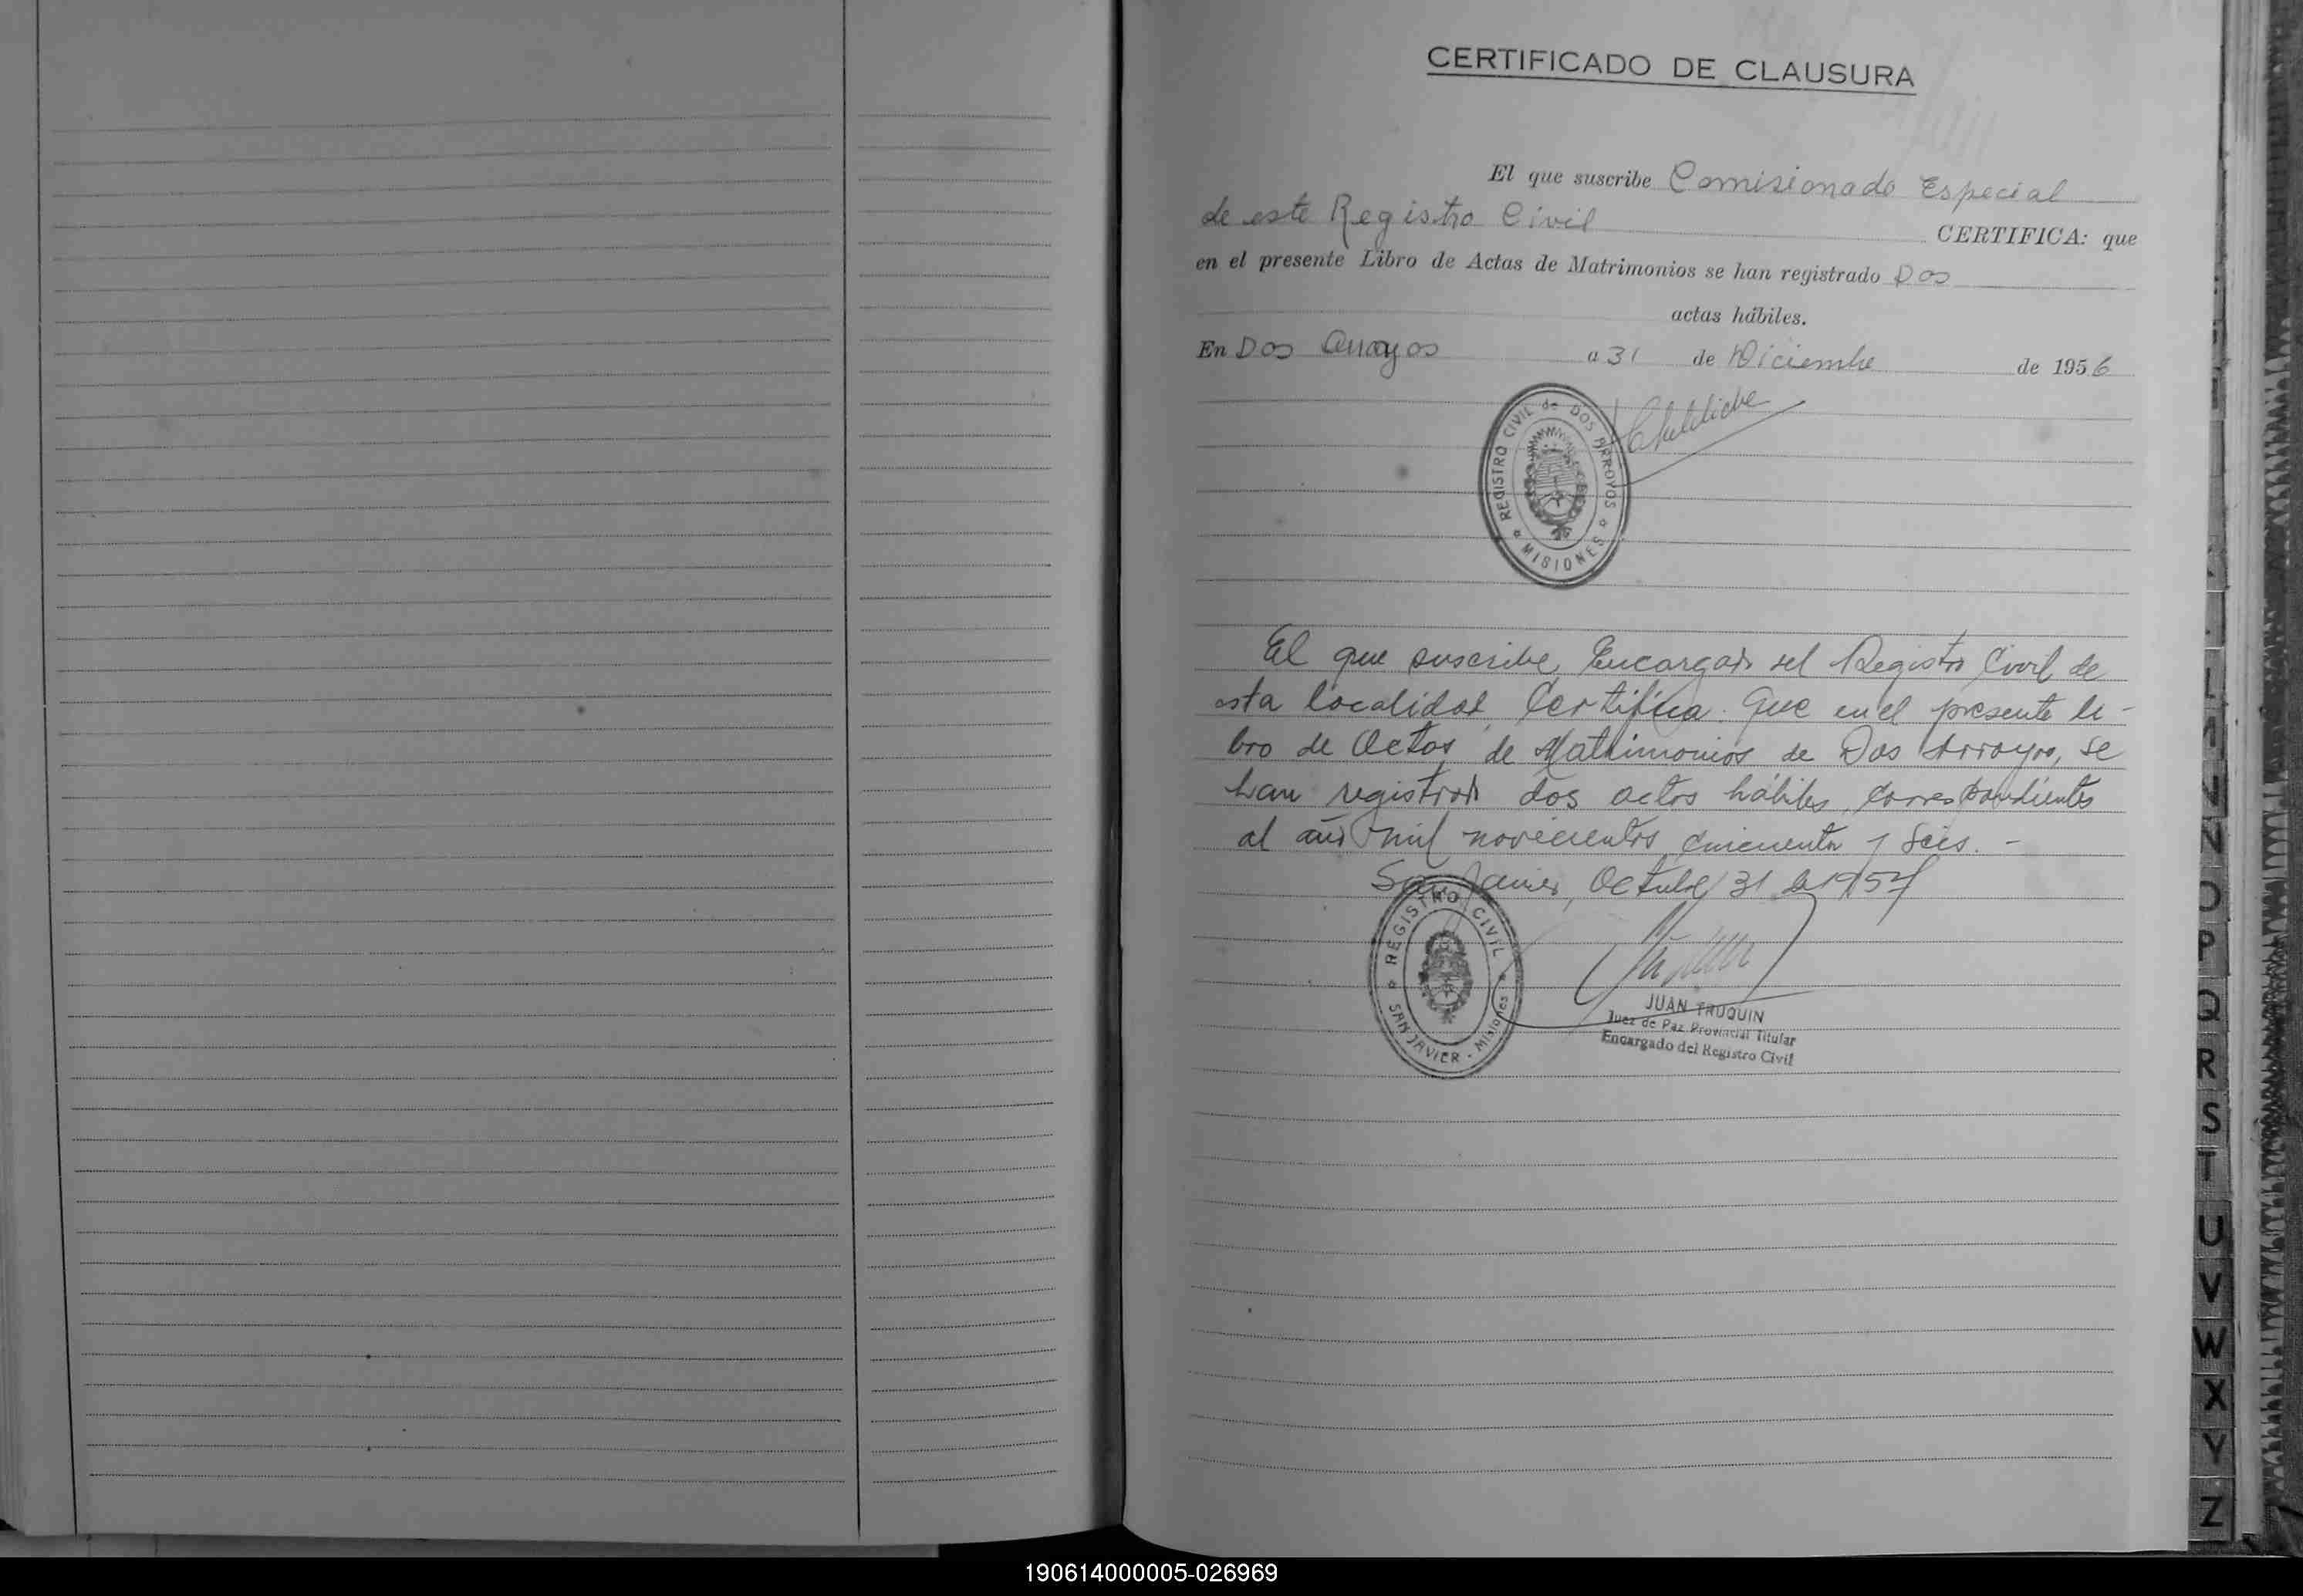 CERTIFICADO DE CLAUSURA
El que suscribe Comisionado Especial
de este Registro Civil CERTIFICA: que
en el presente Libro de Actas de Matrimonios se han registrado Dos
actas hábiles.
En Dos Arroyos a 31 de Diciembre de 1956
REGISTRO CIVIL de DOS ARROYOS
MISIONES
El que suscribe, Encargado del Registro Civil de
esta localidad, Certifica: Que en el presente li-
bro de Actas de Matrimonios de Dos Arroyos, se
han registrado dos actos hábiles, correspondientes
al año mil novecientos cincuenta y seis. -
San Javier, Octubre 31 de 1957
REGISTRO CIVIL
SAN JAVIER - Misiones
JUAN TRUQUIN
Juez de Paz Provincial Titular
Encargado del Registro Civil
L
M
N
N
O
P
Q
R
S
T
U
V
W
X
Y
Z
190614000005-026969